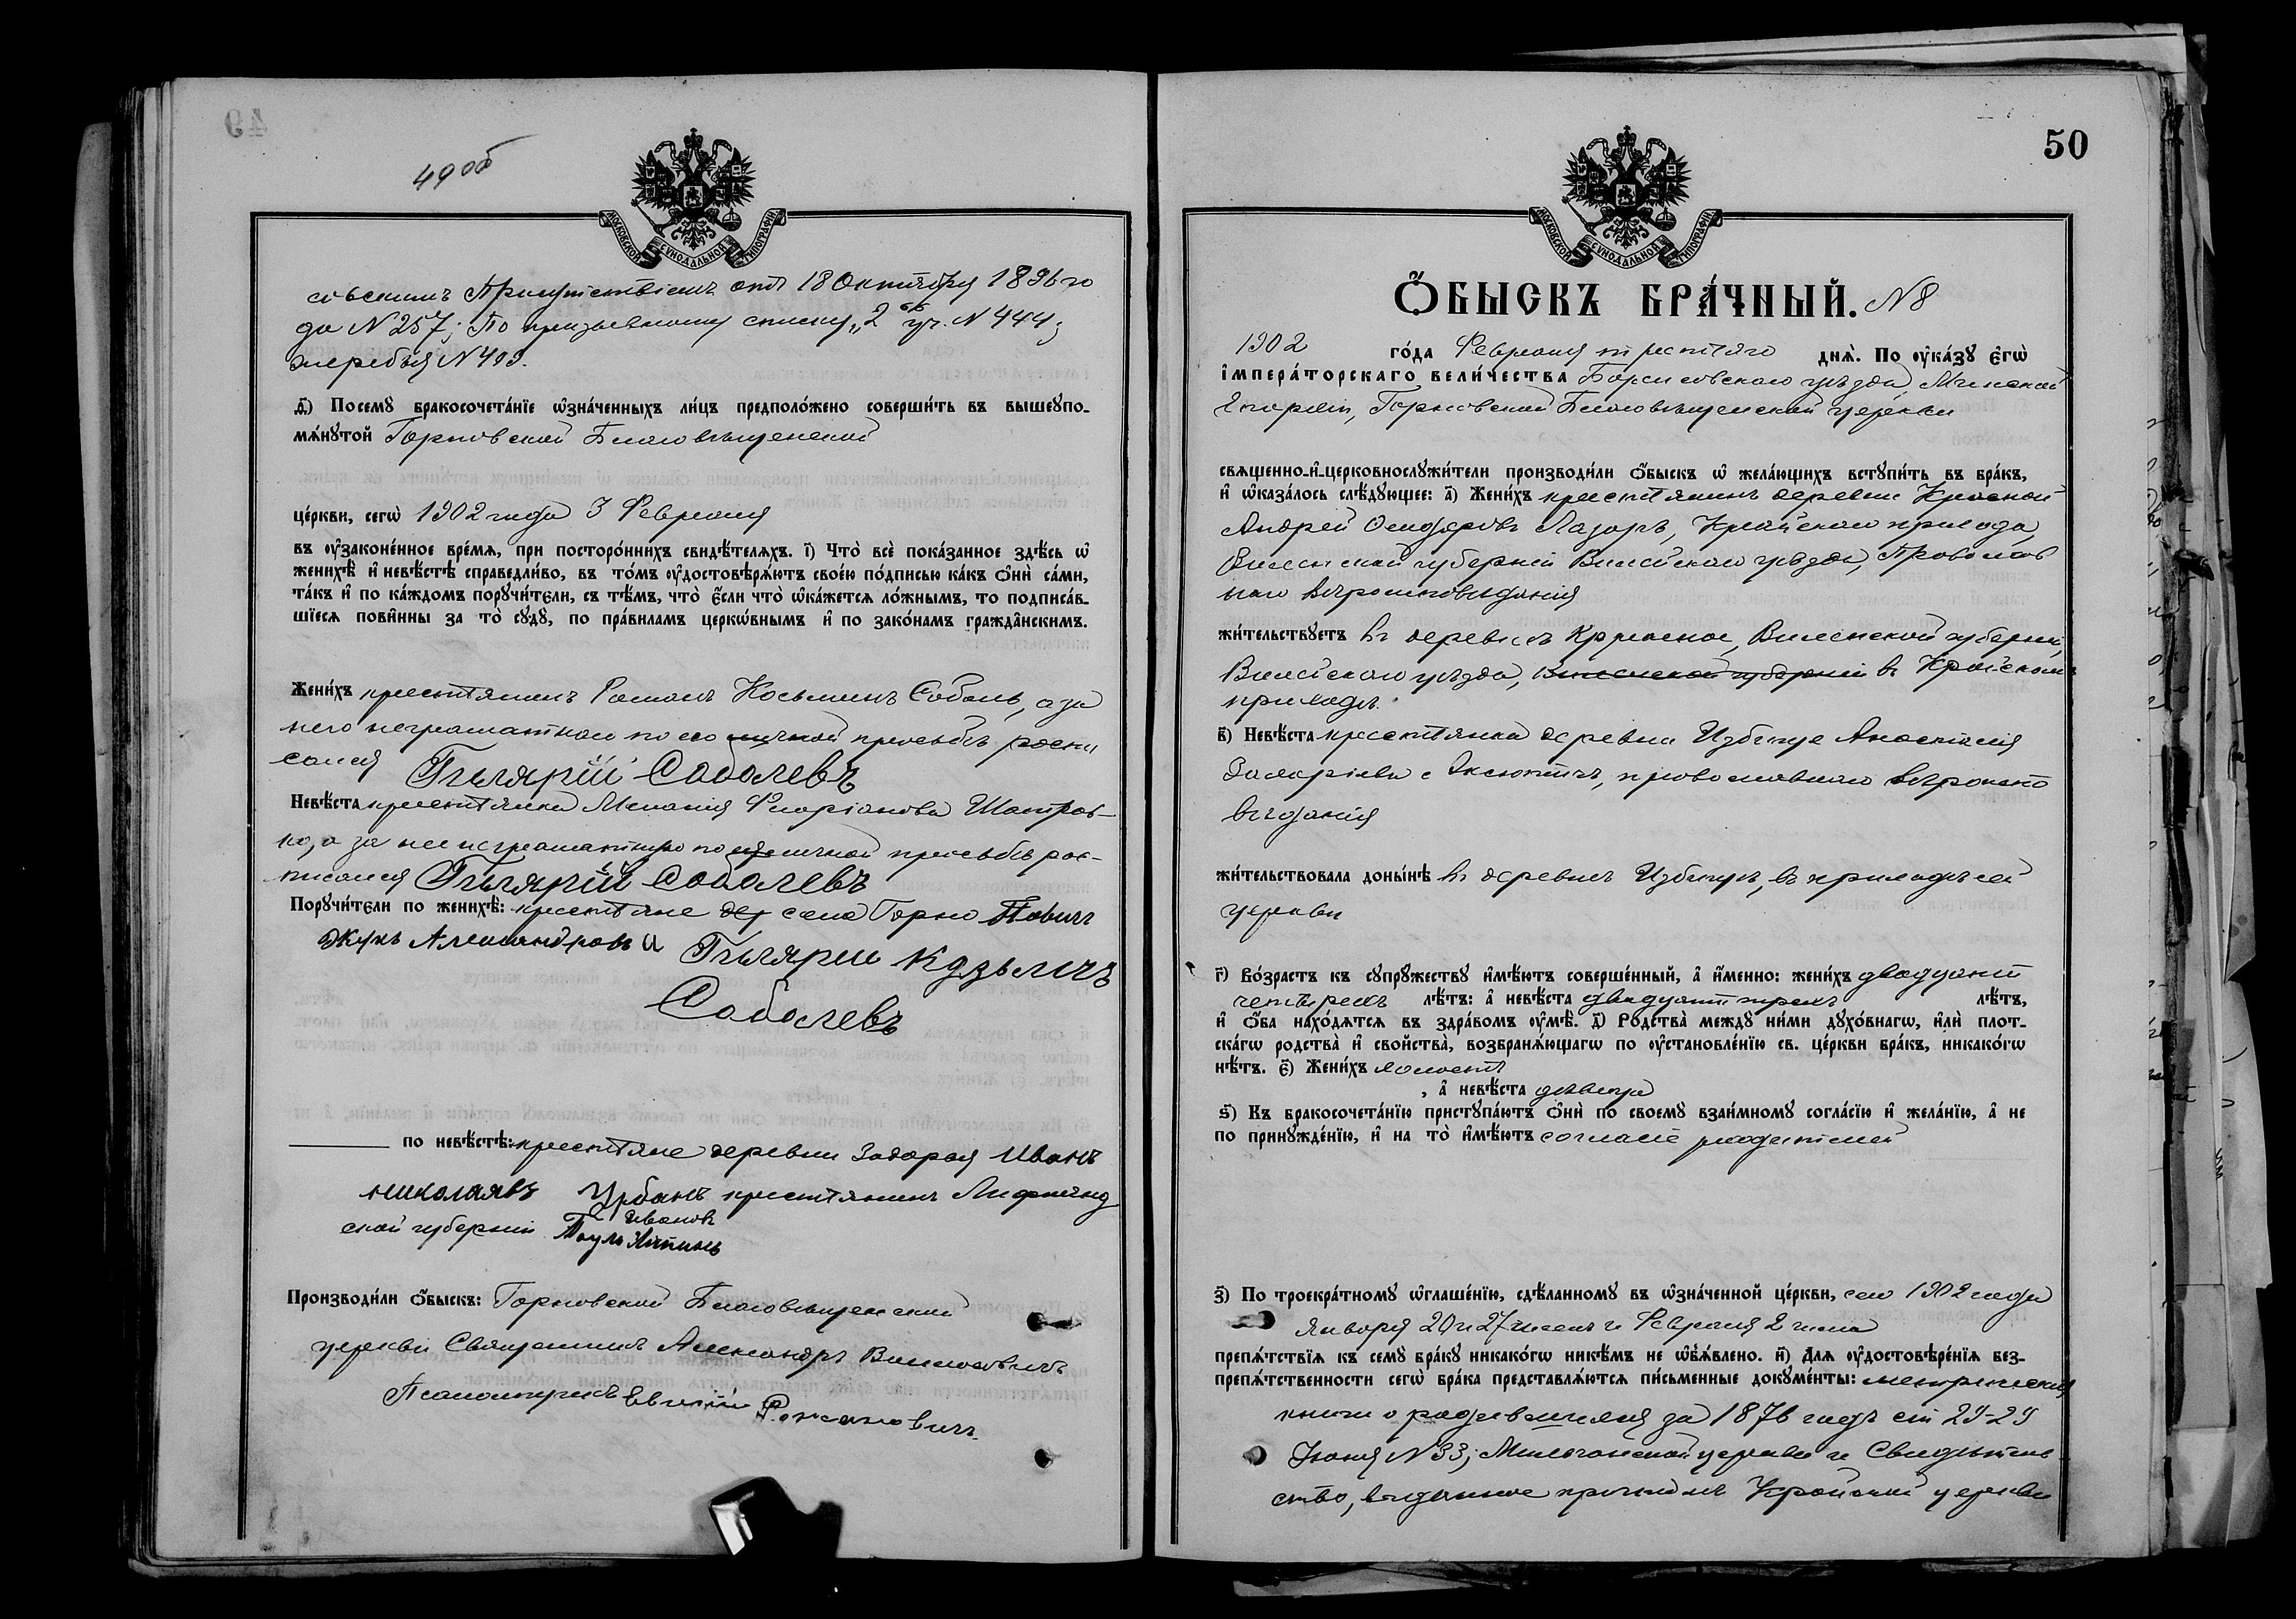 49об
МОСКОВСКОЙ СѴНОДАЛЬНОЙ ТИПОГРАФІИ
Присутствіемъ отъ 18 Октября 1896 го
да N 257; По призывному списку „2 уч. N 444;
жеребья N 409.
д҃) Посемꙋ бракосочета́нїе ѡ҆зна́ченныхъ ли́цъ предположено соверши́ть въ вышеꙋпо-
мѧ́нꙋтой Горновской Благовѣщенской
це́ркви, сегѡ̀ 1902 года 3 Февраля
въ ᲂу҆законе́нное вре́мѧ, при посторо́ннихъ свидѣ́телѧхъ. і҃) Что̀ всѐ пока́занное здѣ́сь ѡ҆
женихѣ̀ и҆ невѣ́стѣ справедли́во, въ то́мъ ᲂу҆достовѣрѧ́ютъ свое́ю по́дписью ка́къ ѻ҆нѝ са́ми,
та́къ и҆ по ка́ждомъ порꙋчи́тели, съ тѣ́мъ, что̀ є҆́сли что̀ ѡ҆ка́жетсѧ ло́жнымъ, то подписа́в-
шїесѧ пови́нны за то̀ сꙋдꙋ̀, по пра́виламъ церко́внымъ и҆ по зако́намъ гражда́нскимъ.
Жени́хъ крестьянинъ Романъ Косьминъ Соболь, а за
него неграмотнаго по его личной просьбѣ распи
сался Гилярій Соболевъ
Невѣ́ста крестьянка Меланія Флоріанова Шатров-
ка, а за нее неграмотную по ея личной просьбѣ рос-
писался Гилярій Соболевъ
Порꙋчи́тели по женихѣ̀: крестьяне дер села Горно
Жукъ Александровъ и Гилярии
Соболевъ
по невѣ́стѣ: крестьяне деревни Задоръя Иванъ
николаявъ Урбанъ крестьянинъ Лифлянд
ской губерніи Пауль Ивановъ
Производи́ли ѻ҆́быскъ: Горновской Благовѣщенской
церкви Священникъ Александръ
Псаломщикъ Евгеній Романовичъ.
50
МОСКОВСКОЙ СѴНОДАЛЬНОЙ ТИПОГРАФІИ
Ѻ҆БЫСКЪ БРА́ЧНЫЙ. N 8
1902 го́да Февраля третьяго днѧ̀. По ᲂу҆ка́зꙋ є҆гѡ̀
і҆мпера́торскаго вели́чества Борисовскаго уѣзда, Минской
Епархіи, Горновской Благовѣщенской церкви
свѧщенно-и҆-церковнослꙋжи́тели производи́ли ѻ҆́быскъ ѡ҆ жела́ющихъ встꙋпи́ть въ бра́къ,
и҆ ѡ҆каза́лось слѣ́дꙋющее: а҃) Жени́хъ крестьянинъ деревни Красной
Андрей Лазаръ, Крайскаго прихода,
Виленской губерніи Вилейскаго уѣзда, Православ
наго вѣроисповѣданія
жи́тельствꙋетъ въ деревнѣ Красное, Виленской губерніи,
Вилейскаго уѣзда, Виленской губерніи въ Крайскомъ
приходѣ.
в҃) Невѣ́ста крестьянка деревни Избище Анастасія
Захаріева Аксютичъ, православнаго вѣроиспо
вѣданія
жи́тельствовала доны́нѣ въ деревнѣ Избищѣ, въ приходѣ сей
церкви
г҃) Во́зрастъ къ сꙋпрꙋ́жествꙋ и҆мѣ́ютъ соверше́нный, а҆ и҆́менно: жени́хъ двадцати
четырехъ лѣ́тъ: а҆ невѣ́ста двадцати трехъ лѣ́тъ,
и҆ ѻ҆́ба нахо́дѧтсѧ въ здра́вомъ ᲂу҆мѣ̀. д҃) Родства̀ междꙋ ни́ми дꙋхо́внагѡ, и҆лѝ плот-
ска́гѡ родства̀ и҆ свойства̀, возбранѧ́ющагѡ по ᲂу҆становле́нїю св. це́ркви бра́къ, никако́гѡ
нѣ́тъ. є҃) Жени́хъ холостъ
, а҆ невѣ́ста дѣвица
ѕ҃) Къ бракосочета́нїю пристꙋпа́ютъ ѻ҆нѝ по своемꙋ̀ взаи́мномꙋ согла́сїю и҆ жела́нїю, а҆ не
по принꙋжде́нїю, и҆ на то̀ и҆мѣ́ютъ согласіе родителей
з҃) По троекра́тномꙋ ѡ҆глаше́нїю, сдѣ́ланномꙋ въ ѡ҆зна́ченной це́ркви, сего 1902 года
Января 20 и 27 чиселъ и Февраля 2 числа
препѧ́тствїѧ къ семꙋ̀ бра́кꙋ никако́гѡ никѣ́мъ не ѡ҆б̾ѧ́влено. и҃) Длѧ ᲂу҆достовѣре́нїѧ без-
препѧ́тственности сегѡ̀ бра́ка представлѧ́ютсѧ пи́сьменные докꙋме́нты: метрическія
книги о родившихся за 1876 годъ ст 29-29
N 33; церкви и Свидѣтель-
ство, выданное причтомъ Крайской церкви